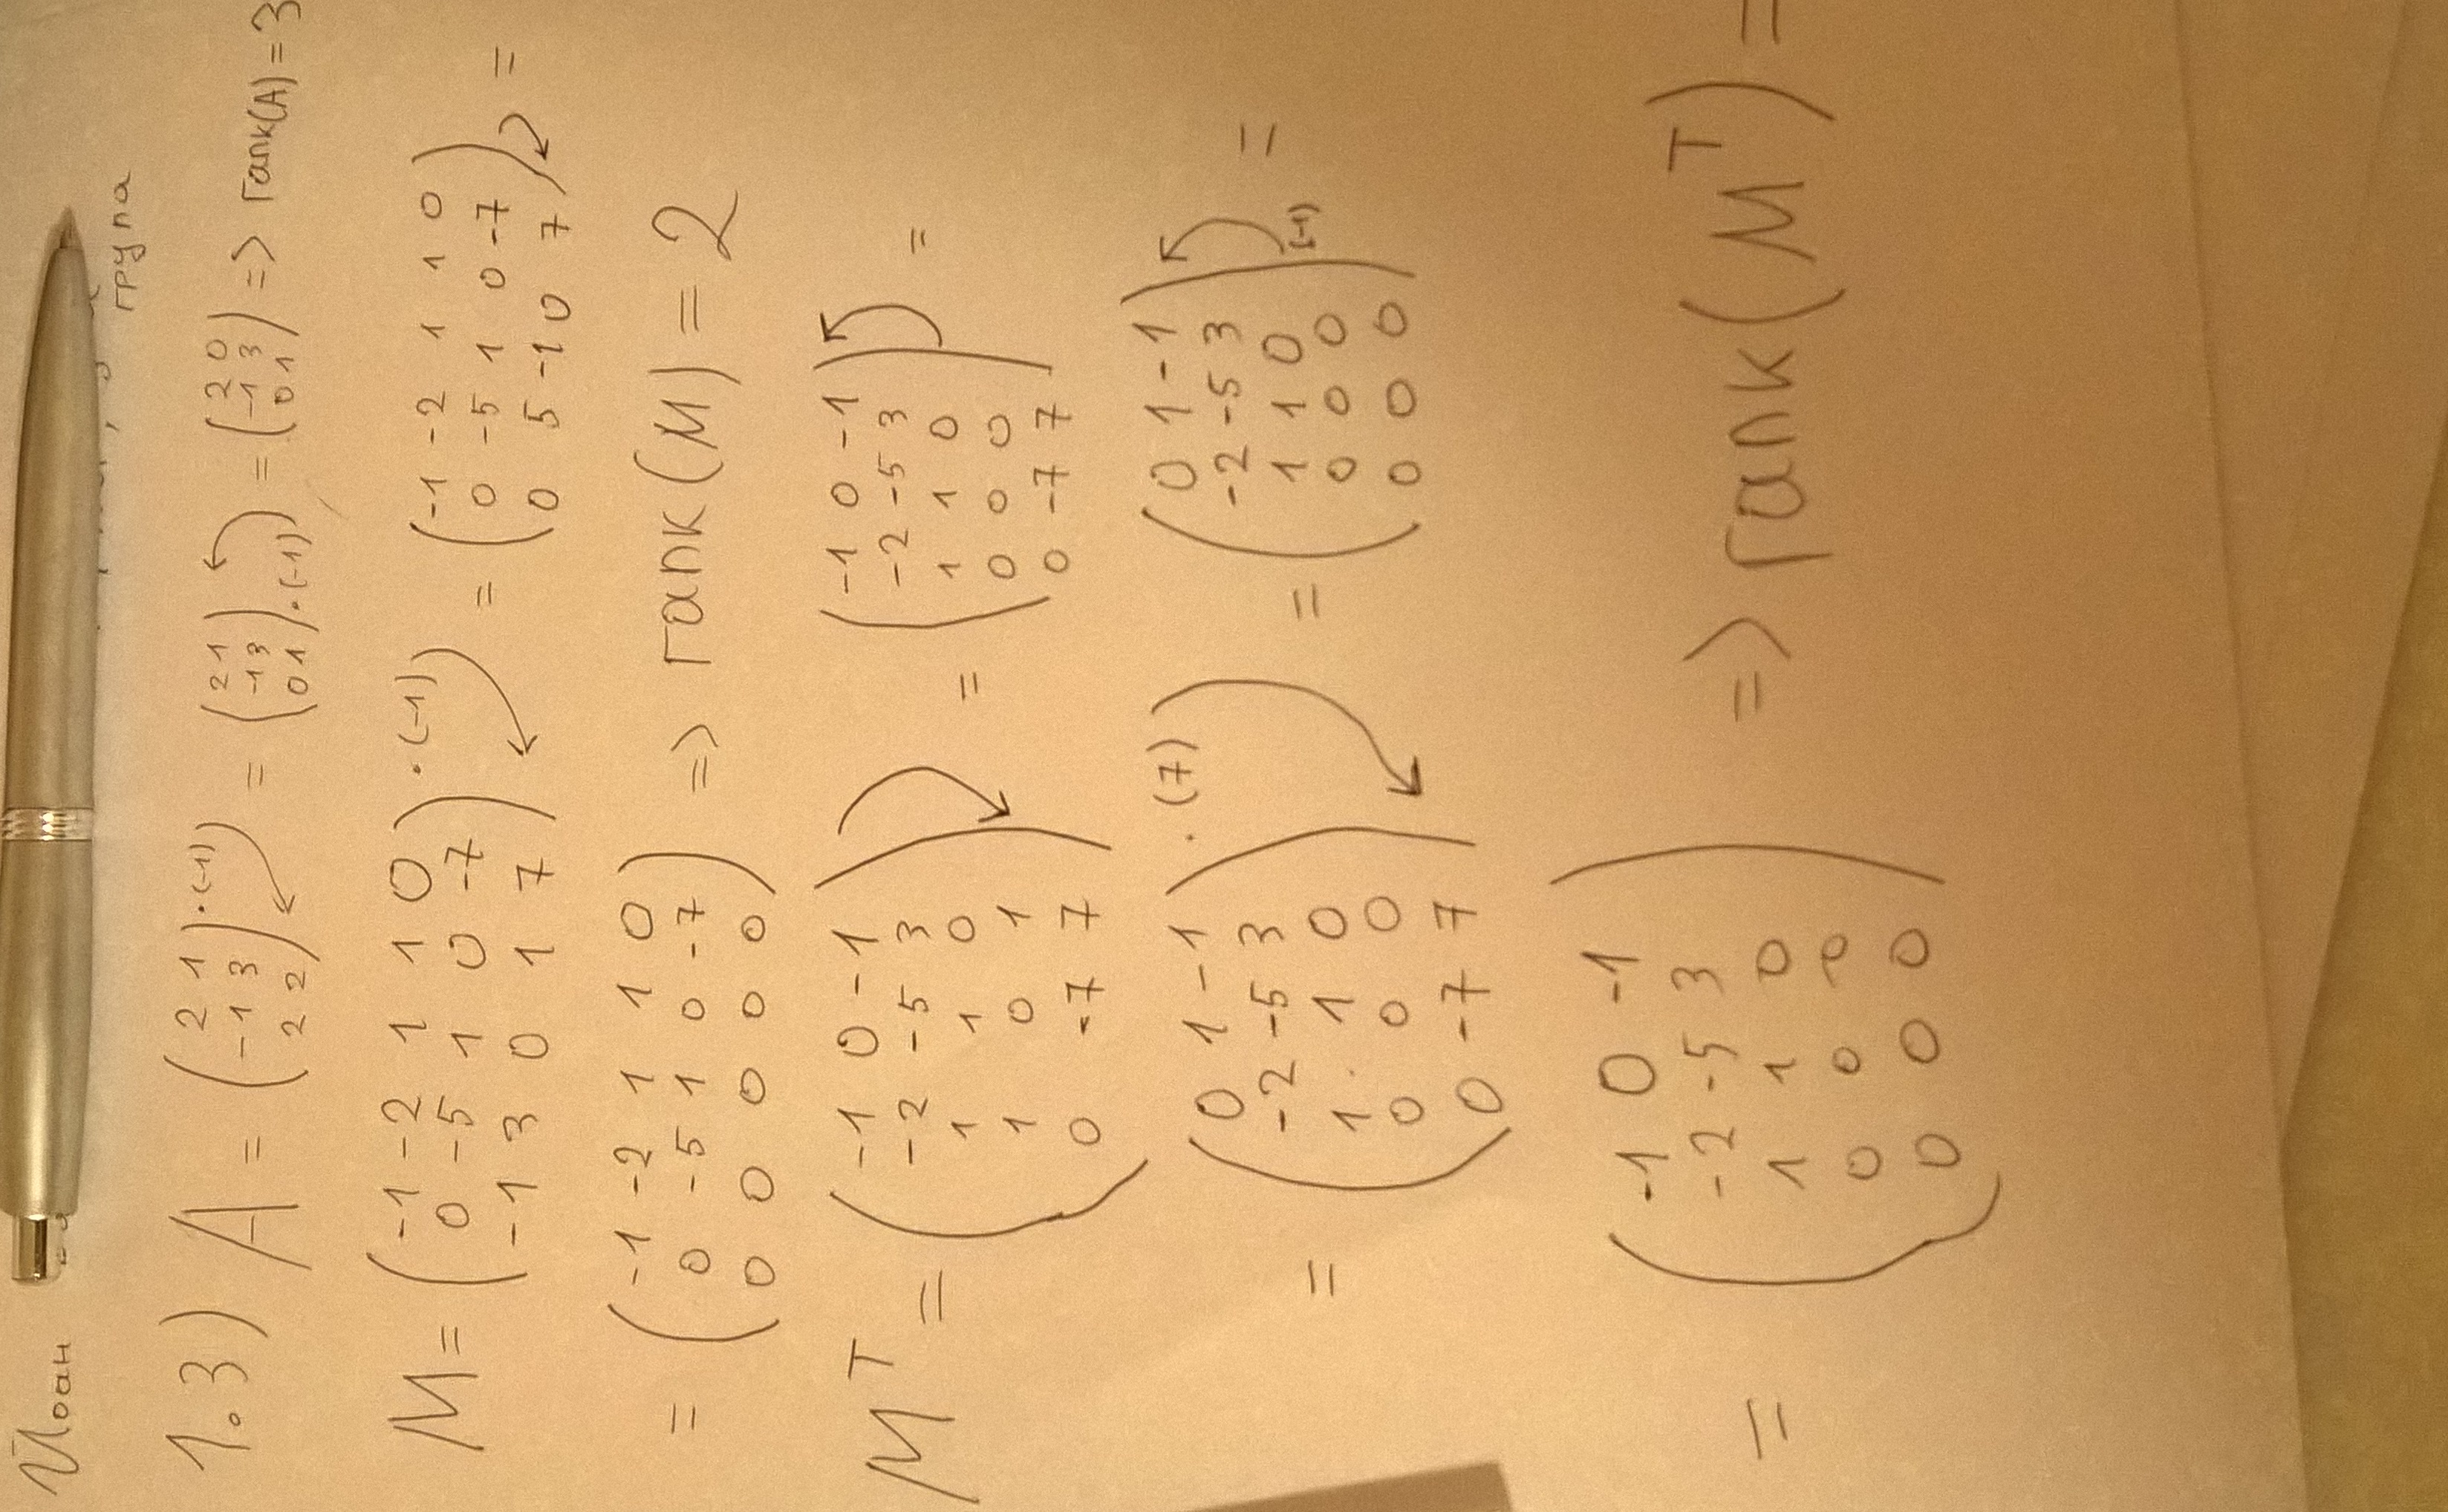 Йоан
група
1.3) A = (2 1; -1 3; 2 2) ·(-1) = (2 1; -1 3; 0 1) ·(-1) = (2 0; -1 3; 0 1) => rank(A) = 3
M = (-1 -2 1 1 0; 0 -5 1 0 -7; -1 3 0 1 7) ·(-1) = (-1 -2 1 1 0; 0 -5 1 0 -7; 0 5 -1 0 7) =
= (-1 -2 1 1 0; 0 -5 1 0 -7; 0 0 0 0 0) => rank(M) = 2
M^T = (-1 0 -1; -2 -5 3; 1 1 0; 1 0 1; 0 -7 7) = (-1 0 -1; -2 -5 3; 1 1 0; 0 0 0; 0 -7 7) =
= (0 1 -1; -2 -5 3; 1 1 0; 0 0 0; 0 -7 7) ·(7) = (0 1 -1; -2 -5 3; 1 1 0; 0 0 0; 0 0 0) (-1) =
= (-1 0 -1; -2 -5 3; 1 1 0; 0 0 0; 0 0 0) => rank(M^T) =